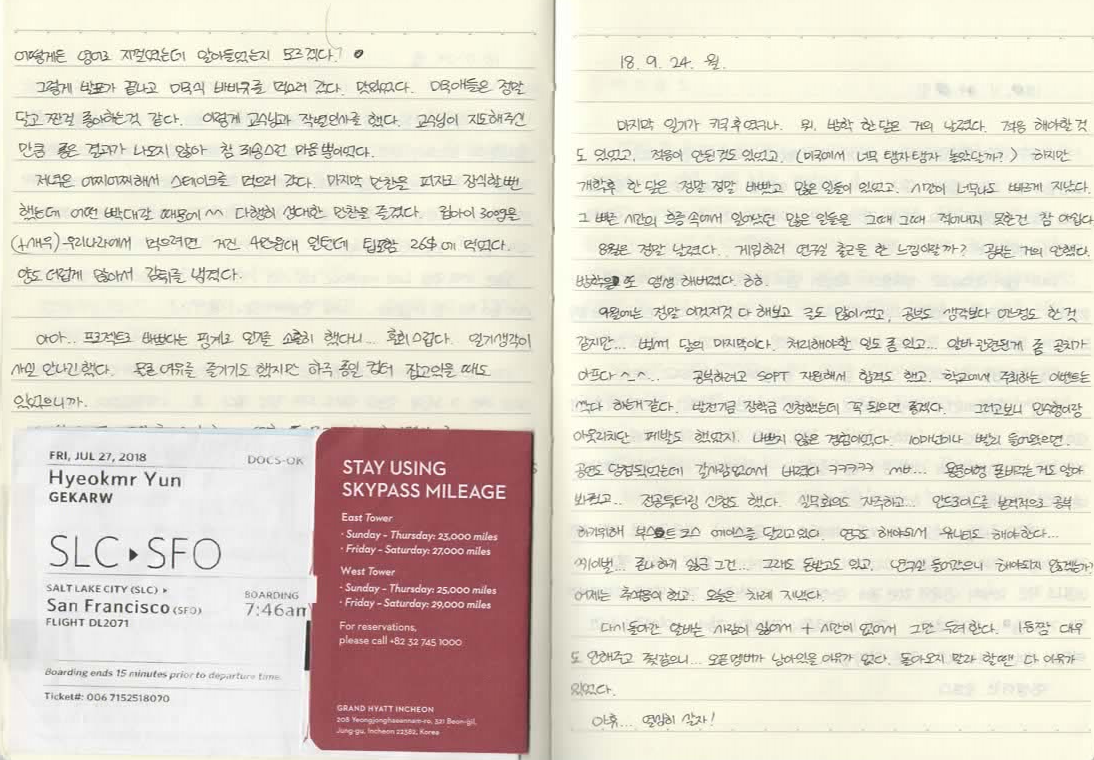 어떻게든 영어로 지껄였는데 알아들었는지 모르겠다?
그렇게 발표가 끝나고 미국식 바비큐를 먹으러 갔다. 맛있었다. 미국애들은 정말
달고 짠걸 좋아하는것 같다. 이렇게 교수님과 작별인사를 했다. 교수님이 지도해주신
만큼 좋은 결과가 나오지 않아 참 죄송스런 마음뿐이었다.
저녁은 어찌어찌해서 스테이크를 먹으러 갔다. 마지막 만찬을 피자로 장식할뻔
했는데 어떤 빡대갈 때문에 ^^ 다행히 성대한 만찬을 즐겼다. 립아이 30영온
(+새우) 우리나라에서 먹으려면 거진 4만원대 일텐데 팁포함 26$에 먹었다.
양도 더럽게 많아서 감튀를 남겼다.
아아... 프로젝트로 바쁘다는 핑계로 일기를 소홀히 했다니... 후회스럽다. 일기생각이
사실 안나긴했다. 물론 여유를 즐기기도 했지만 하루 종일 컴터 잡고있을 때도
있었으니까.
FRI, JUL 27, 2018
DOCS-OK
Hyeokmr Yun
GEKARW
SLC ▸ SFO
SALT LAKE CITY (SLC) ▸
BOARDING
San Francisco (SFO)
7:46am
FLIGHT DL2071
Boarding ends 15 minutes prior to departure time.
Ticket#: 006 7152518070
STAY USING
SKYPASS MILEAGE
East Tower
· Sunday – Thursday: 23,000 miles
· Friday – Saturday: 27,000 miles
West Tower
· Sunday – Thursday: 25,000 miles
· Friday – Saturday: 29,000 miles
For reservations,
please call +82 32 745 1000
GRAND HYATT INCHEON
208 Yeongjonghaeannam-ro, 321 Beon-gil,
Jung-gu, Incheon 22382, Korea
18. 9. 24. 월.
마지막 일기가 귀국후였구나. 뭐, 방학 한달은 거의 날렸다. 적응 해야할것
도 있었고, 적응이 안된것도 있었고, (미국에서 너무 탱자탱자 놀았달까?) 하지만
개학후 한달은 정말 정말 바빴고 많은 일들이 있었고, 시간이 너무나도 빠르게 지났다.
그 빠른 시간의 흐름 속에서 일어났던 많은 일들을 그때 그때 적어내지 못한건 참 아쉽다.
8월은 정말 날렸다. 게임하러 연구실 출근을 한 느낌이랄까? 공부는 거의 안했다.
방학을 또 앵생 해버렸다. 하하.
9월에는 정말 이것저것 다 해보고 글도 많이썼고, 공부도 생각보다 어느정도 한것
같지만... 벌써 달의 마지막이다. 처리해야할 일도 좀 있고... 알바 관련된게 좀 골치가
아프다 ^_^... 공부하려고 SOPT 지원해서 합격도 했고, 학교에서 주최하는 이벤트는
싹다 하는거 같다. 발전기금 장학금 신청했는데 꼭 됐으면 좋겠다. 그러고보니 민수형이랑
아웃리치단 페박도 했었지. 나쁘지 않은 경험이었다. 10만원이나 벌리 들어왔으면.
공연도 당첨되었는데 갈사람없어서 버렸다 ㅋㅋㅋㅋㅋ
봐줬고... 전공튜터링 신청도 했다. 실무회의도 자주하고... 안드로이드를 본격적으로 공부
하기위해 부스트 코스 에이스를 달리고있다. 연구도 해야되서 유니티도 해야한다...
씨이벌... 존나하기 싫군 그건... 그래도 돈받고도 있고, 연구실 들어갔으니 해야되지 않겠는가?
어제는 추석등이 했고, 오늘은 차례 지냈다.
다시 돌아간 알바는 사람이 싫어서 + 시간이 없어서 그만 두려한다. 1등짬 대우
도 안해주고 좆같으니... 오픈멤버가 남아있을 이유가 없다. 돌아오지 말라 할땐 다 이유가
있었다.
아휴... 열심히 살자!